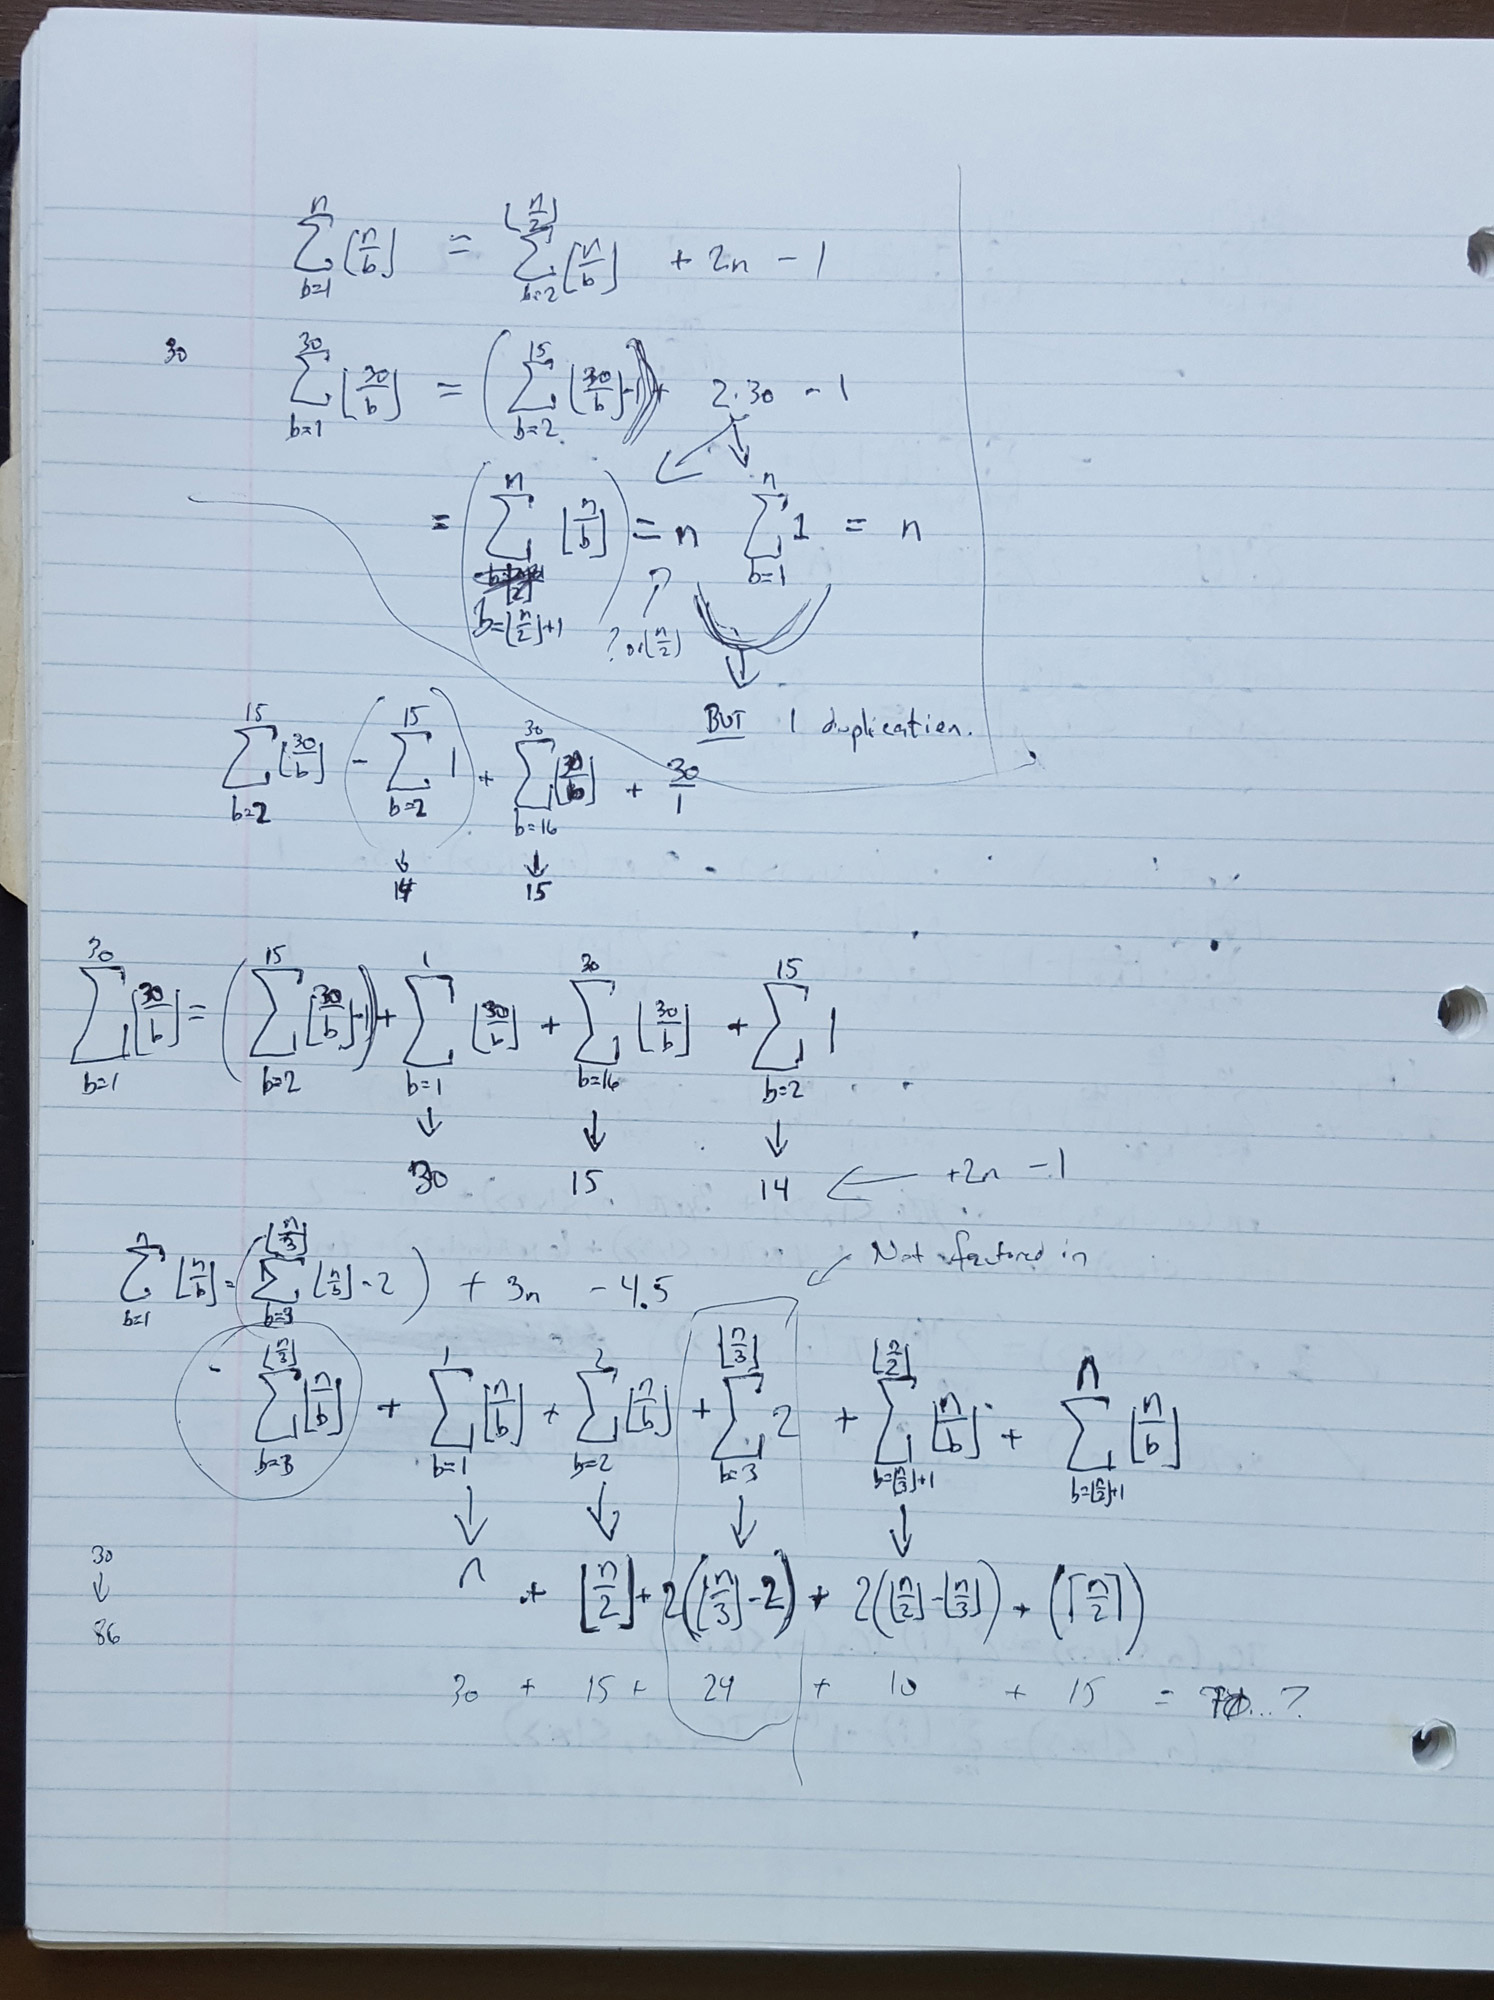 ∑_{b=1}^{n} ⌊n/b⌋ = ∑_{b=2}^{⌊n/2⌋} ⌊n/b⌋ + 2n - 1
30 ∑_{b=1}^{30} ⌊30/b⌋ = (∑_{b=2}^{15} ⌊30/b⌋ - 1) + 2·30 - 1
= (∑_{b=⌊n/2⌋+1}^{n} ⌊n/b⌋) = n ∑_{b=1}^{n} 1 = n
? or (n/2)
BUT 1 duplication.
∑_{b=2}^{15} ⌊30/b⌋ - (∑_{b=2}^{15} 1) + ∑_{b=16}^{30} ⌊30/b⌋ + 30/1
↓ ↓
14 15
∑_{b=1}^{30} ⌊30/b⌋ = (∑_{b=2}^{15} ⌊30/b⌋ - 1) + ∑_{b=1}^{1} ⌊30/b⌋ + ∑_{b=16}^{30} ⌊30/b⌋ + ∑_{b=2}^{15} 1
↓ ↓ ↓
30 15 14 ← +2n - 1
Not factored in
∑_{b=1}^{n} ⌊n/b⌋ = (∑_{b=3}^{⌊n/3⌋} ⌊n/b⌋ - 2) + 3n - 4.5
- ∑_{b=3}^{⌊n/3⌋} ⌊n/b⌋ + ∑_{b=1}^{1} ⌊n/b⌋ + ∑_{b=2}^{2} ⌊n/b⌋ + ∑_{b=3}^{⌊n/3⌋} 2 + ∑_{b=⌊n/3⌋+1}^{⌊n/2⌋} ⌊n/b⌋ + ∑_{b=⌊n/2⌋+1}^{n} ⌊n/b⌋
↓ ↓ ↓ ↓
30 ↓ 86
n + ⌊n/2⌋ + 2(⌊n/3⌋ - 2) + 2(⌊n/2⌋ - ⌊n/3⌋) + (⌈n/2⌉)
30 + 15 + 24 + 10 + 15 = 70...?